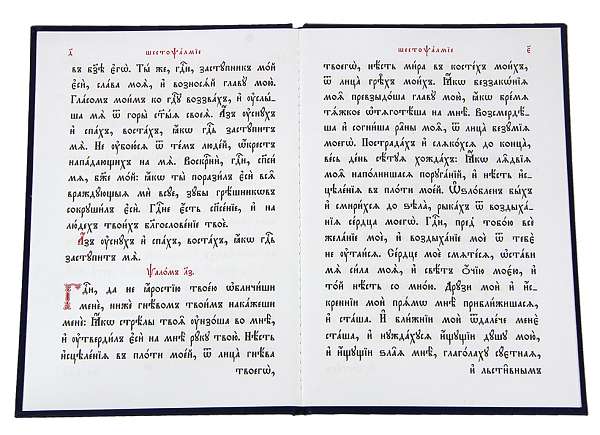 д҃
шестоѱа́лмїе
въ бз҃ѣ є҆гѡ̀. Ты́ же, гдⷭ҇и, застꙋ́пникъ мо́й
є҆сѝ, сла́ва моѧ̀, и҆ возносѧ́й главꙋ̀ мою̀.
Гла́сомъ мои́мъ ко гдⷭ҇ꙋ воззва́хъ, и҆ ᲂу҆слы́-
ша мѧ̀ ѿ горы̀ ст҃ы́ѧ своеѧ̀. А҆́зъ ᲂу҆снꙋ́хъ
и҆ спа́хъ, воста́хъ, ꙗ҆́кѡ гдⷭ҇ь застꙋ́питъ
мѧ̀. Не ᲂу҆бою́сѧ ѿ те́мъ люде́й, ѡ҆́крестъ
напа́дающихъ на мѧ̀. Воскрⷭ҇нѝ, гдⷭ҇и, сп҃си́
мѧ, бж҃е мо́й: ꙗ҆́кѡ ты̀ порази́лъ є҆сѝ всѧ̑
враждꙋ́ющыѧ мѝ всꙋ́е, зꙋ́бы грѣ́шникѡвъ
сокрꙋши́лъ є҆сѝ. Гдⷭ҇не є҆́сть сп҃се́нїе, и҆ на
лю́дехъ твои́хъ благослове́нїе твоѐ.
А҆́зъ ᲂу҆снꙋ́хъ и҆ спа́хъ, воста́хъ, ꙗ҆́кѡ гдⷭ҇ь
застꙋ́питъ мѧ̀.
Ѱало́мъ л҃з.
Гдⷭ҇и, да не ꙗ҆́ростїю твое́ю ѡ҆бличи́ши
менѐ, нижѐ гнѣ́вомъ твои́мъ нака́жеши
менѐ: Ꙗ҆́кѡ стрѣ́лы твоѧ̑ ᲂу҆нзо́ша во мнѣ̀,
и҆ ᲂу҆тверди́лъ є҆сѝ на мнѣ̀ рꙋ́кꙋ твою̀. Нѣ́сть
и҆сцѣле́нїѧ въ пло́ти мое́й, ѿ лица̀ гнѣ́ва
твоегѡ̀,
шестоѱа́лмїе
є҃
твоегѡ̀, нѣ́сть ми́ра въ косте́хъ мои́хъ,
ѿ лица̀ грѣ̑хъ мои́хъ. Ꙗ҆́кѡ беззакѡ́нїѧ
моѧ̑ превзыдо́ша главꙋ̀ мою̀, ꙗ҆́кѡ бре́мѧ
тѧ́жкое ѡ҆тѧготѣ́ша на мнѣ̀. Возсмердѣ́-
ша и҆ согни́ша ра̑ны моѧ̑, ѿ лица̀ безꙋ́мїѧ
моегѡ̀. Пострада́хъ и҆ слѧко́хсѧ до конца̀,
ве́сь де́нь сѣ́тꙋѧ хожда́хъ: Ꙗ҆́кѡ лѧ́двїѧ
моѧ̑ напо́лнишасѧ порꙋга́нїй, и҆ нѣ́сть и҆с-
цѣле́нїѧ въ пло́ти мое́й. Ѡ҆ѕло́бленъ бы́хъ
и҆ смири́хсѧ до ѕѣла̀, рыка́хъ ѿ воздыха́-
нїѧ се́рдца моегѡ̀. Гдⷭ҇и, пред̾ тобо́ю всѐ
жела́нїе моѐ, и҆ воздыха́нїе моѐ ѿ тебє̀
не ᲂу҆таи́сѧ. Се́рдце моѐ смѧте́сѧ, ѡ҆ста́ви
мѧ̀ си́ла моѧ̀, и҆ свѣ́тъ ѻ҆́чїю моє́ю, и҆
то́й нѣ́сть со мно́ю. Дрꙋ́зи моѝ и҆ и҆́с-
креннїи моѝ прѧ́мѡ мнѣ̀ прибли́жишасѧ,
и҆ ста́ша. И҆ бли́жнїи моѝ ѿдале́че менє̀
ста́ша, и҆ нꙋжда́хꙋсѧ и҆́щꙋщїи дꙋ́шꙋ мою̀,
и҆ и҆́щꙋщїи ѕла̑ѧ мнѣ̀, глаго́лахꙋ сꙋ́єтнаѧ,
и҆ льсти̑внымъ